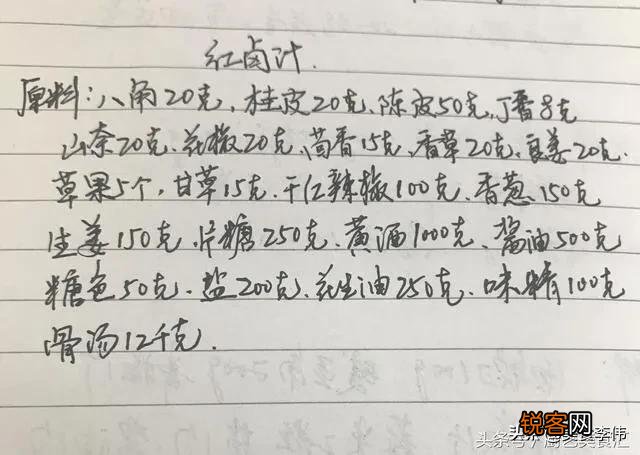 红卤汁.
原料:八角20克,桂皮20克、陈皮50克、丁香8克
山柰20克、花椒20克、茴香15克、香草20克、良姜20克、
草果5个,甘草15克、干红辣椒100克、香葱150克
生姜150克、片糖250克、黄酒1000克、酱油500克
糖色50克、盐200克、花生油250克、味精100克
骨汤12千克.
锐客网